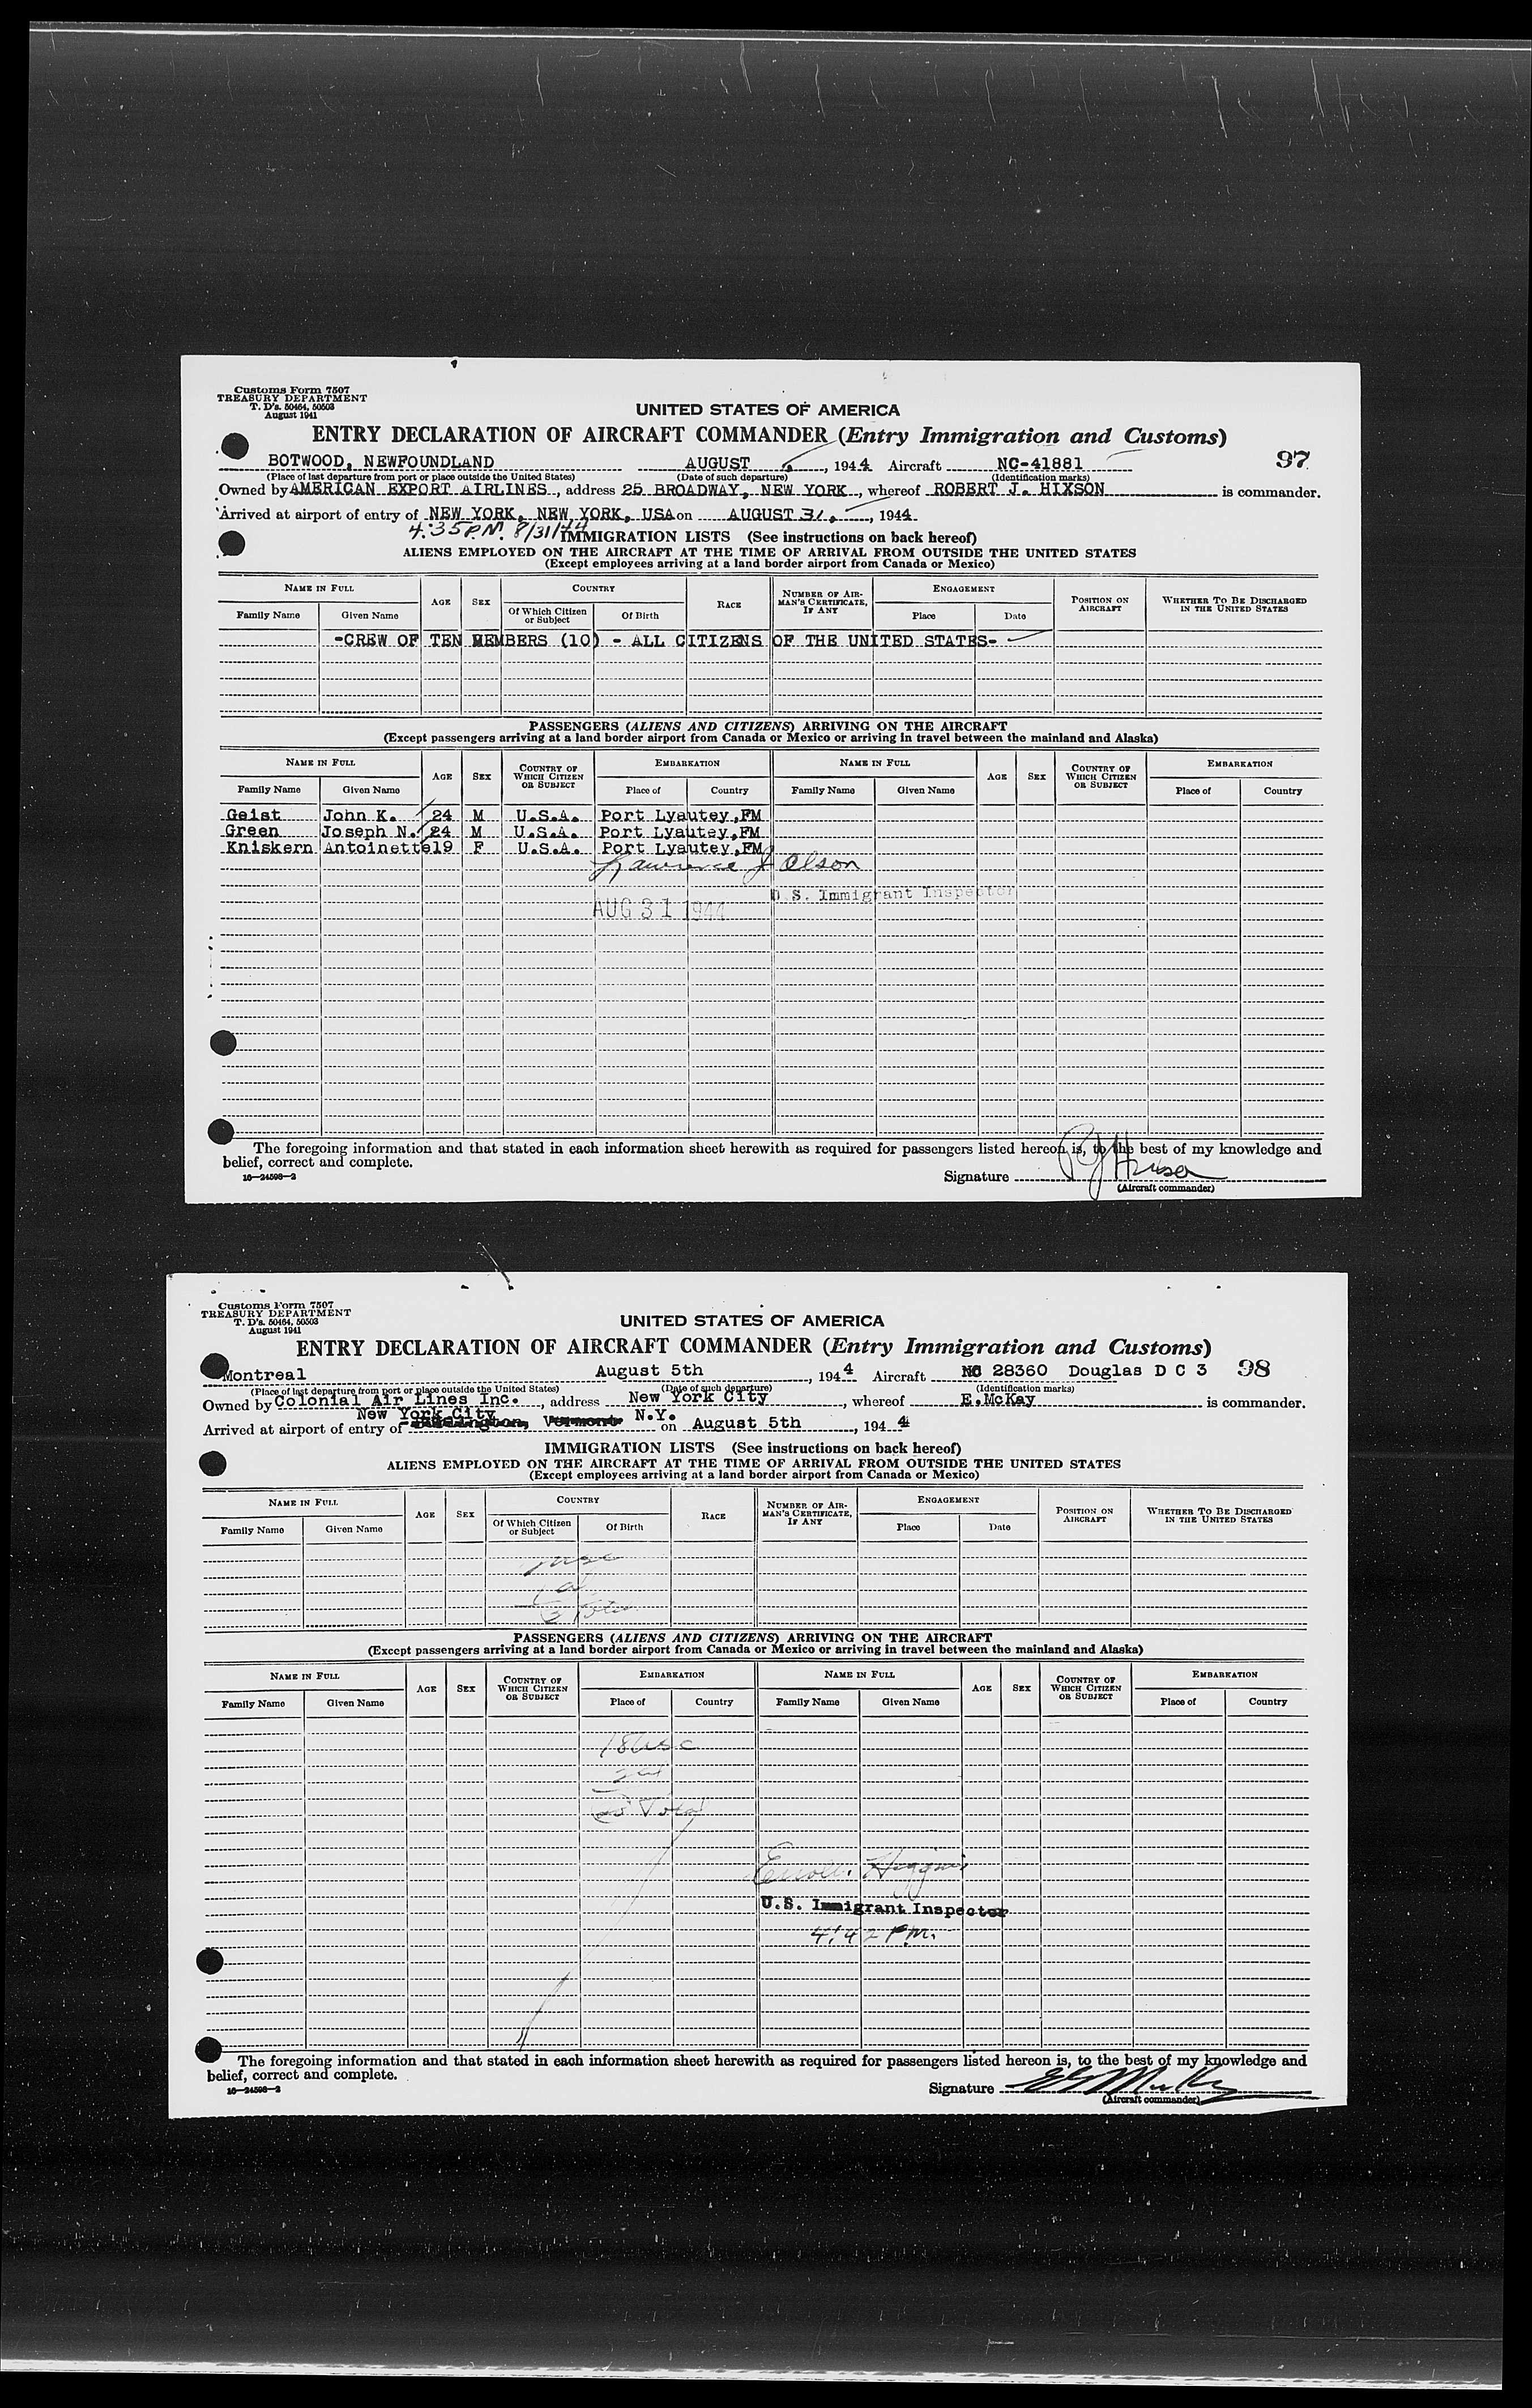 Customs Form 7507
TREASURY DEPARTMENT
T. D's. 50464, 50503
August 1941
UNITED STATES OF AMERICA
ENTRY DECLARATION OF AIRCRAFT COMMANDER (Entry Immigration and Customs)
BOTWOOD, NEWFOUNDLAND AUGUST , 1944 Aircraft NC-41881 97
(Place of last departure from port or place outside the United States) (Date of such departure) (Identification marks)
Owned by AMERICAN EXPORT AIRLINES, address 25 BROADWAY, NEW YORK, whereof ROBERT J. HIXSON is commander.
Arrived at airport of entry of NEW YORK, NEW YORK, USA on AUGUST 31, 1944
4:35 P.M. 8/31/44
IMMIGRATION LISTS (See instructions on back hereof)
ALIENS EMPLOYED ON THE AIRCRAFT AT THE TIME OF ARRIVAL FROM OUTSIDE THE UNITED STATES
(Except employees arriving at a land border airport from Canada or Mexico)
NAME IN FULL AGE SEX COUNTRY RACE NUMBER OF AIRMAN'S CERTIFICATE, IF ANY ENGAGEMENT POSITION ON AIRCRAFT WHETHER TO BE DISCHARGED IN THE UNITED STATES
Family Name Given Name Of Which Citizen or Subject Of Birth Place Date
-CREW OF TEN MEMBERS (10) - ALL CITIZENS OF THE UNITED STATES-
PASSENGERS (ALIENS AND CITIZENS) ARRIVING ON THE AIRCRAFT
(Except passengers arriving at a land border airport from Canada or Mexico or arriving in travel between the mainland and Alaska)
NAME IN FULL AGE SEX COUNTRY OF WHICH CITIZEN OR SUBJECT EMBARKATION NAME IN FULL AGE SEX COUNTRY OF WHICH CITIZEN OR SUBJECT EMBARKATION
Family Name Given Name Place of Country Family Name Given Name Place of Country
Geist John K. 24 M U.S.A. Port Lyautey,FM
Green Joseph N. 24 M U.S.A. Port Lyautey,FM
Kniskern Antoinette 19 F U.S.A. Port Lyautey,FM
Lawrence J Olson
U.S. Immigrant Inspector
AUG 31 1944
The foregoing information and that stated in each information sheet herewith as required for passengers listed hereon is, to the best of my knowledge and
belief, correct and complete.
16—24598-2
Signature RJ Hixson
(Aircraft commander)
Customs Form 7507
TREASURY DEPARTMENT
T. D's. 50464, 50503
August 1941
UNITED STATES OF AMERICA
ENTRY DECLARATION OF AIRCRAFT COMMANDER (Entry Immigration and Customs)
Montreal August 5th , 1944 Aircraft NC 28360 Douglas D C 3 98
(Place of last departure from port or place outside the United States) (Date of such departure) (Identification marks)
Owned by Colonial Air Lines Inc. , address New York City , whereof E.McKay is commander.
New York City N.Y.
Arrived at airport of entry of Burlington, Vermont on August 5th , 1944
IMMIGRATION LISTS (See instructions on back hereof)
ALIENS EMPLOYED ON THE AIRCRAFT AT THE TIME OF ARRIVAL FROM OUTSIDE THE UNITED STATES
(Except employees arriving at a land border airport from Canada or Mexico)
NAME IN FULL AGE SEX COUNTRY RACE NUMBER OF AIRMAN'S CERTIFICATE, IF ANY ENGAGEMENT POSITION ON AIRCRAFT WHETHER TO BE DISCHARGED IN THE UNITED STATES
Family Name Given Name Of Which Citizen or Subject Of Birth Place Date
PASSENGERS (ALIENS AND CITIZENS) ARRIVING ON THE AIRCRAFT
(Except passengers arriving at a land border airport from Canada or Mexico or arriving in travel between the mainland and Alaska)
NAME IN FULL AGE SEX COUNTRY OF WHICH CITIZEN OR SUBJECT EMBARKATION NAME IN FULL AGE SEX COUNTRY OF WHICH CITIZEN OR SUBJECT EMBARKATION
Family Name Given Name Place of Country Family Name Given Name Place of Country
18 usc
20 Total
Higgins
U.S. Immigrant Inspector
4:42 P.M.
The foregoing information and that stated in each information sheet herewith as required for passengers listed hereon is, to the best of my knowledge and
belief, correct and complete.
16—24598-2
Signature
(Aircraft commander)